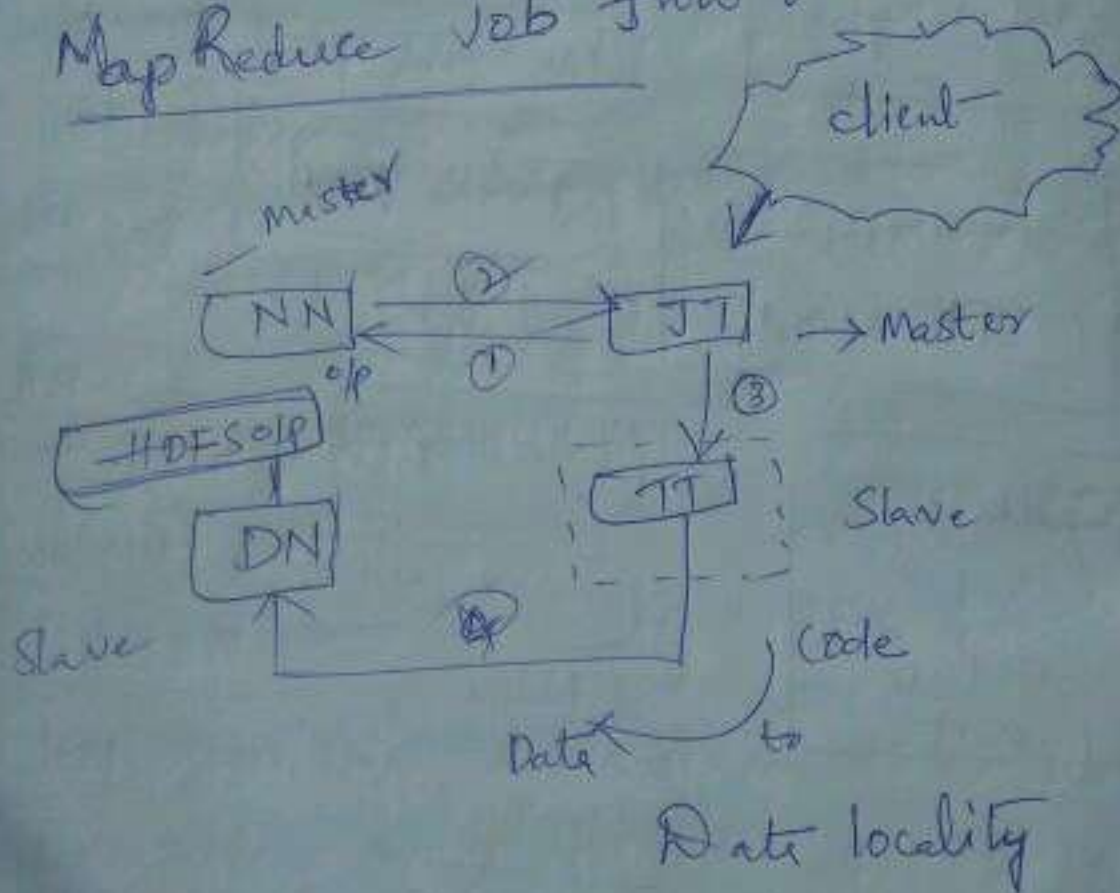 MapReduce Job
client
Master
NN
②
JT
→ Master
①
o/p
③
HDFS o/p
TT
Slave
DN
④
Slave
Code
Data
to
Data locality